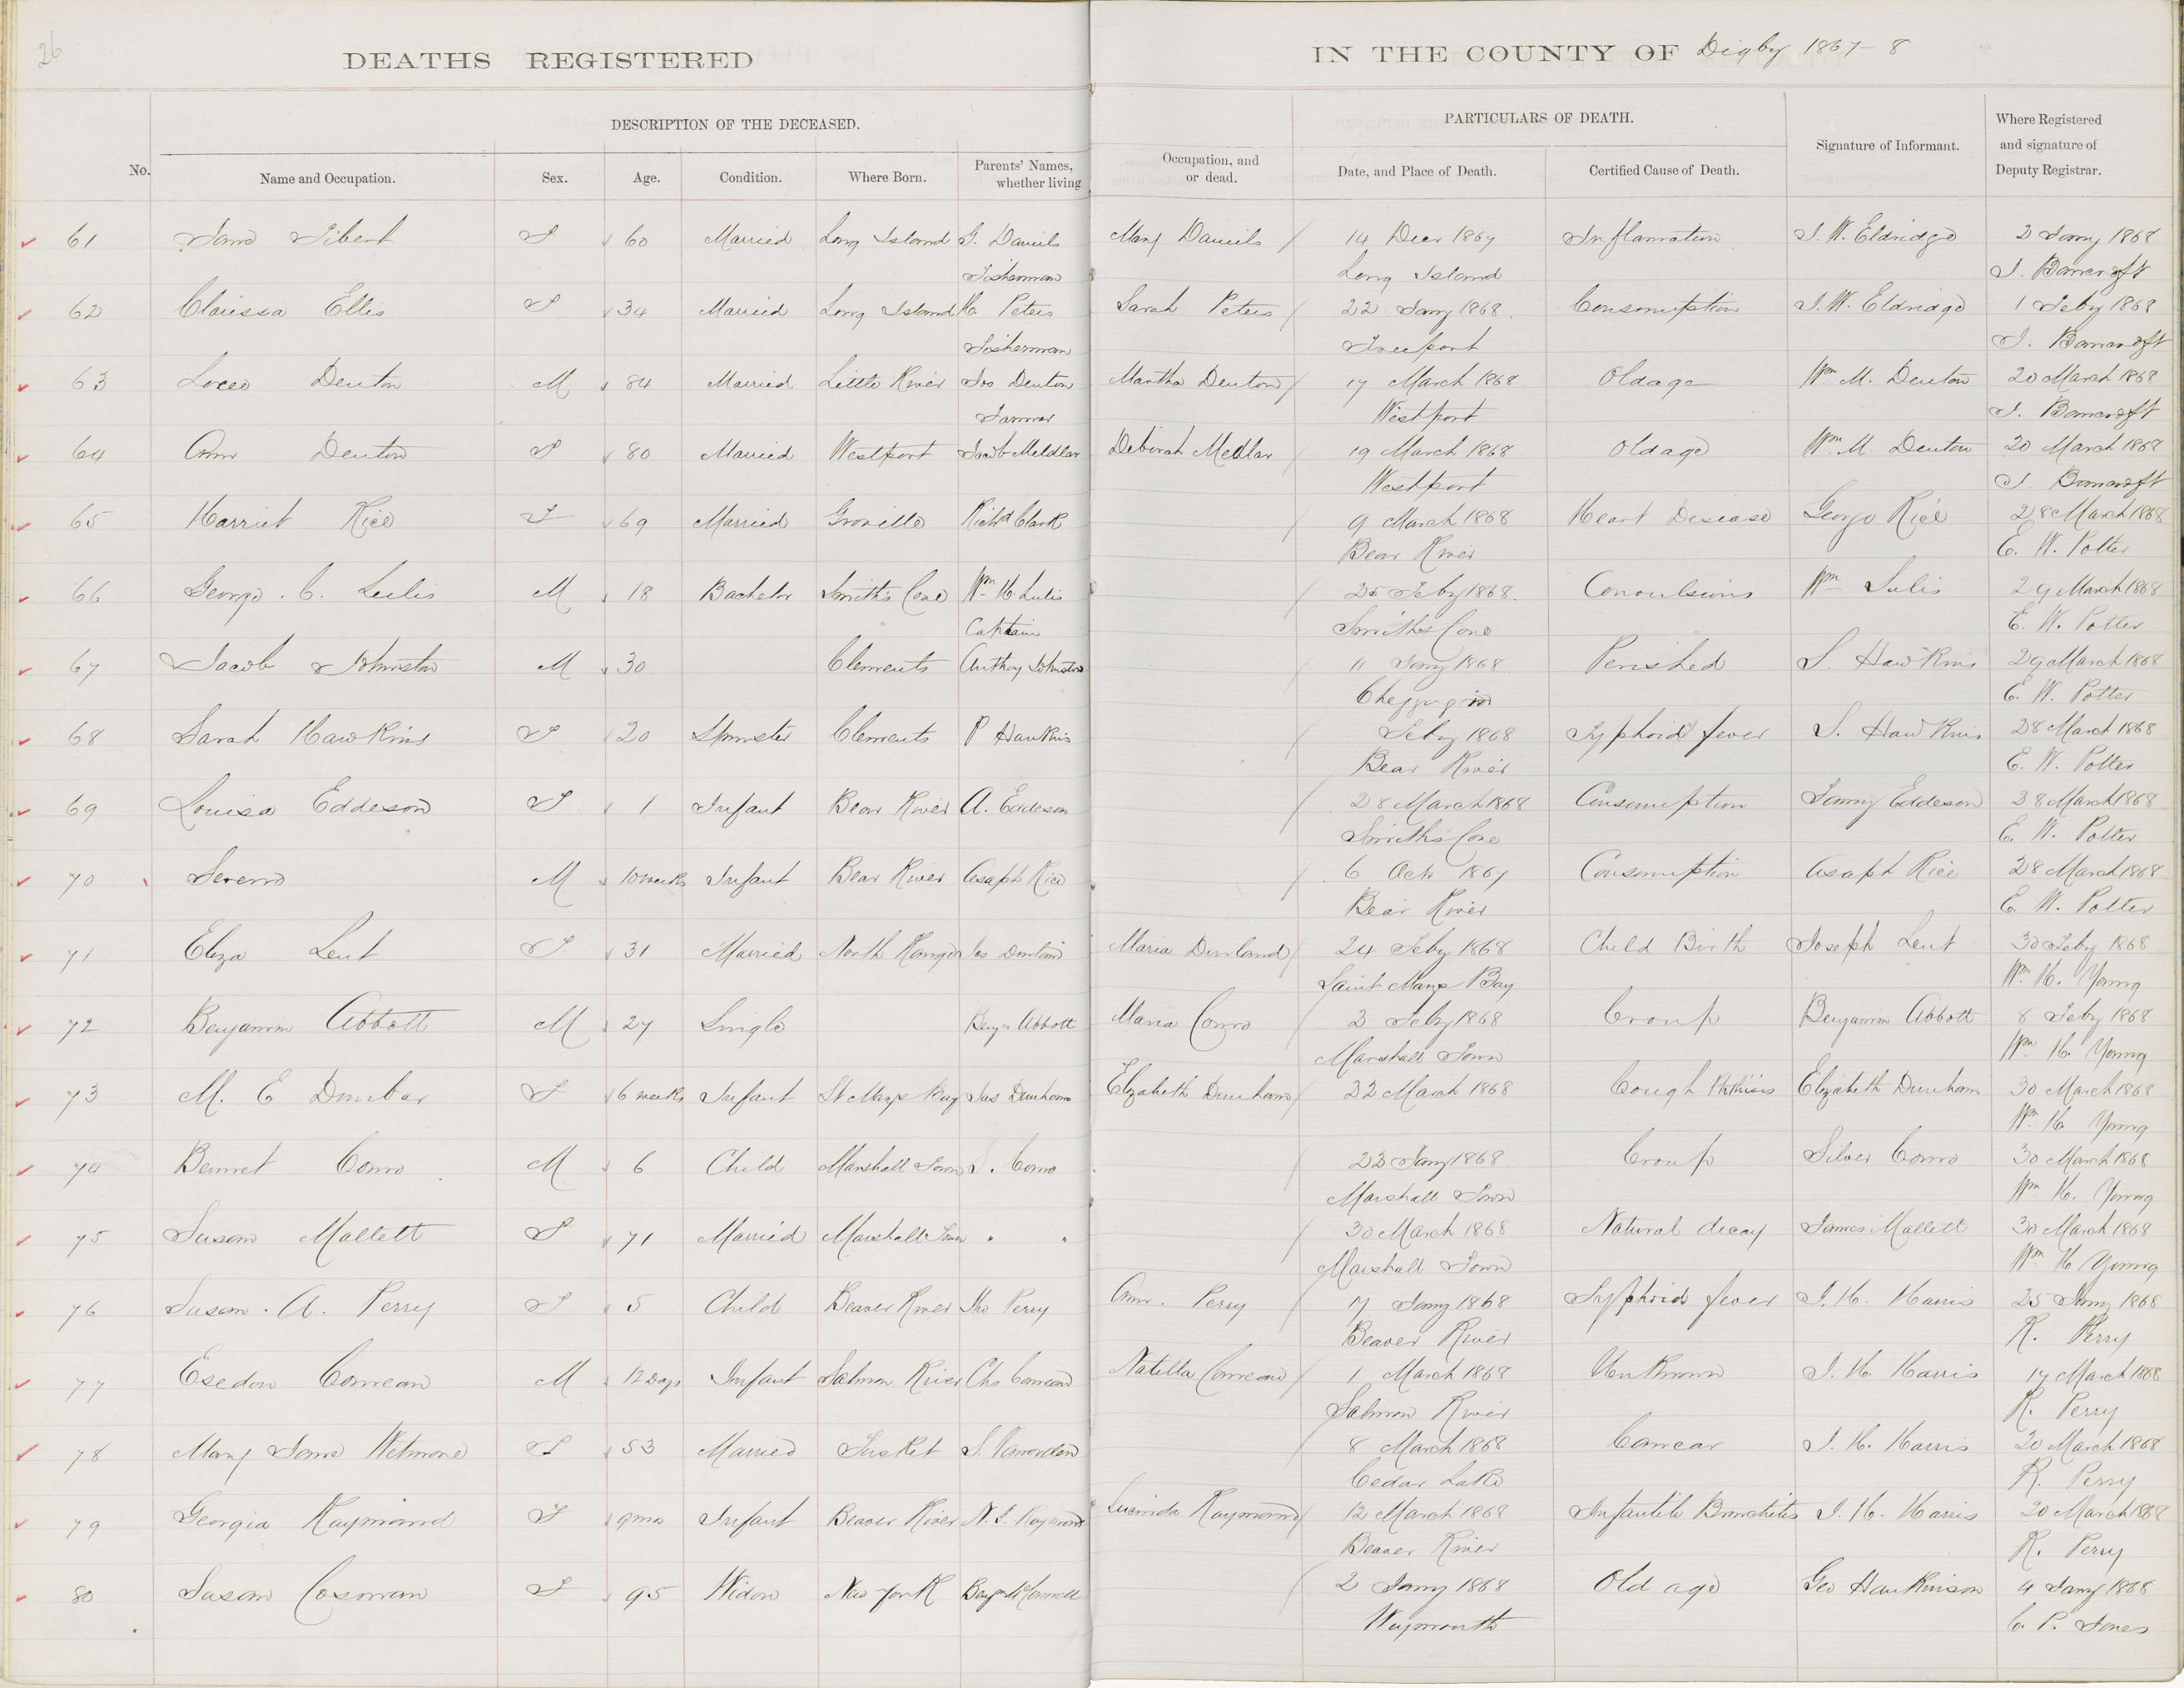 26
DEATHS REGISTERED IN THE COUNTY OF Digby 1867-8
DESCRIPTION OF THE DECEASED. PARTICULARS OF DEATH.
No. Name and Occupation. Sex. Age. Condition. Where Born. Parents' Names, whether living Occupation, and or dead. Date, and Place of Death. Certified Cause of Death. Signature of Informant. Where Registered and signature of Deputy Registrar.
61 Jane Tibert F 60 Married Long Island G. Daniels Mary Daniels 14 Decr 1867 Inflamation J. W. Eldridge 2 Jany 1868
Fisherman Long Island J. Bancroft
62 Clarissa Ellis F 34 Married Long Island C. Peters Sarah Peters 22 Jany 1868 Consumption J. W. Eldridge 1 Feby 1868
Fisherman Freeport J. Bancroft
63 Denton M 84 Married Little River Jos Denton Martha Denton 17 March 1868 Old age Wm M. Denton 20 March 1868
Farmer Westport J. Bancroft
64 Ann Denton F 80 Married Westport Jacob Meldlar Deborah Medlar 19 March 1868 Old age Wm M. Denton 20 March 1868
Westport J. Bancroft
65 Harriet Rice F 69 Married Granville Richd Clark 9 March 1868 Heart Disease George Rice 28 March 1868
Bear River E. W. Potter
66 George . C. Sulis M 18 Bachelor Smith's Cove Wm H. Sulis 25 Feby 1868. Convulsions Wm Sulis 29 March 1868
Captain Smiths Cove E. W. Potter
67 Jacob Johnston M 30 Clements Anthoy Johnston 11 Jany 1868 Perished S. Hawkins 29 March 1868
E. W. Potter
68 Sarah Hawkins F 20 Spinster Clements P Hawkins Feby 1868 Typhoid fever S. Hawkins 28 March 1868
Bear River E. W. Potter
69 Louisa Eddeson F 1 Infant Bear River A. Eddeson 28 March 1868 Consumption Fanny Eddeson 28 March 1868
Smiths Cove E. W. Potter
70 Sereno M 10 weeks Infant Bear River Asaph Rice 6 Octr 1867 Consumption Asaph Rice 28 March 1868
Bear River E. W. Potter
71 Eliza Lent F 31 Married North Range Maria Durland 24 Feby 1868 Child Birth Joseph Lent 30 Feby 1868
Saint Marys Bay Wm H. Young
72 Benjamin Abbott M 27 Single Benjn Abbott Maria Como 3 Feby 1868 Croup Benjamin Abbott 8 Feby 1868
Marshall Town Wm H. Young
73 M. E Dunbar F 6 weeks Infant St Marys Bay Jas Dunham Elizabeth Dunham 22 March 1868 Cough Phthisis Elizabeth Dunham 30 March 1868
Wm H. Young
74 Bennet Como M 6 Child Marshall Town S. Como 22 Jany 1868 Croup Silver Como 30 March 1868
Marshall Town Wm H. Young
75 Susan Mallett F 71 Married Marshall Town " " 30 March 1868 Natural decay James Mallett 30 March 1868
Marshall Town Wm H Young
76 Susan . A. Perry F 5 Child Beaver River Tho Perry Ann. Perry 17 Jany 1868 Typhoid fever J. H. Harris 25 Jany 1868
Beaver River R. Perry
77 Esedon Comeau M 12 Days Infant Salmon River Chs Comeau Natilla Comeau 1 March 1868 Unknown J. H. Harris 17 March 1868
Salmon River R. Perry
78 Mary Jane Wetmore F 53 Married Tusket 8 March 1868 Cancar J. H. Harris 20 March 1868
Cedar Lake R. Perry
79 Georgia Raymond F 9 mos Infant Beaver River N. S. Raymond Lucinda Raymond 12 March 1868 Infantile Bronchitis J. H. Harris 20 March 1868
Beaver River R. Perry
80 Susan Cosman F 95 Widow New York 2 Jany 1868 Old age Geo Hankinson 4 Jany 1868
Weymouth C. P. Jones